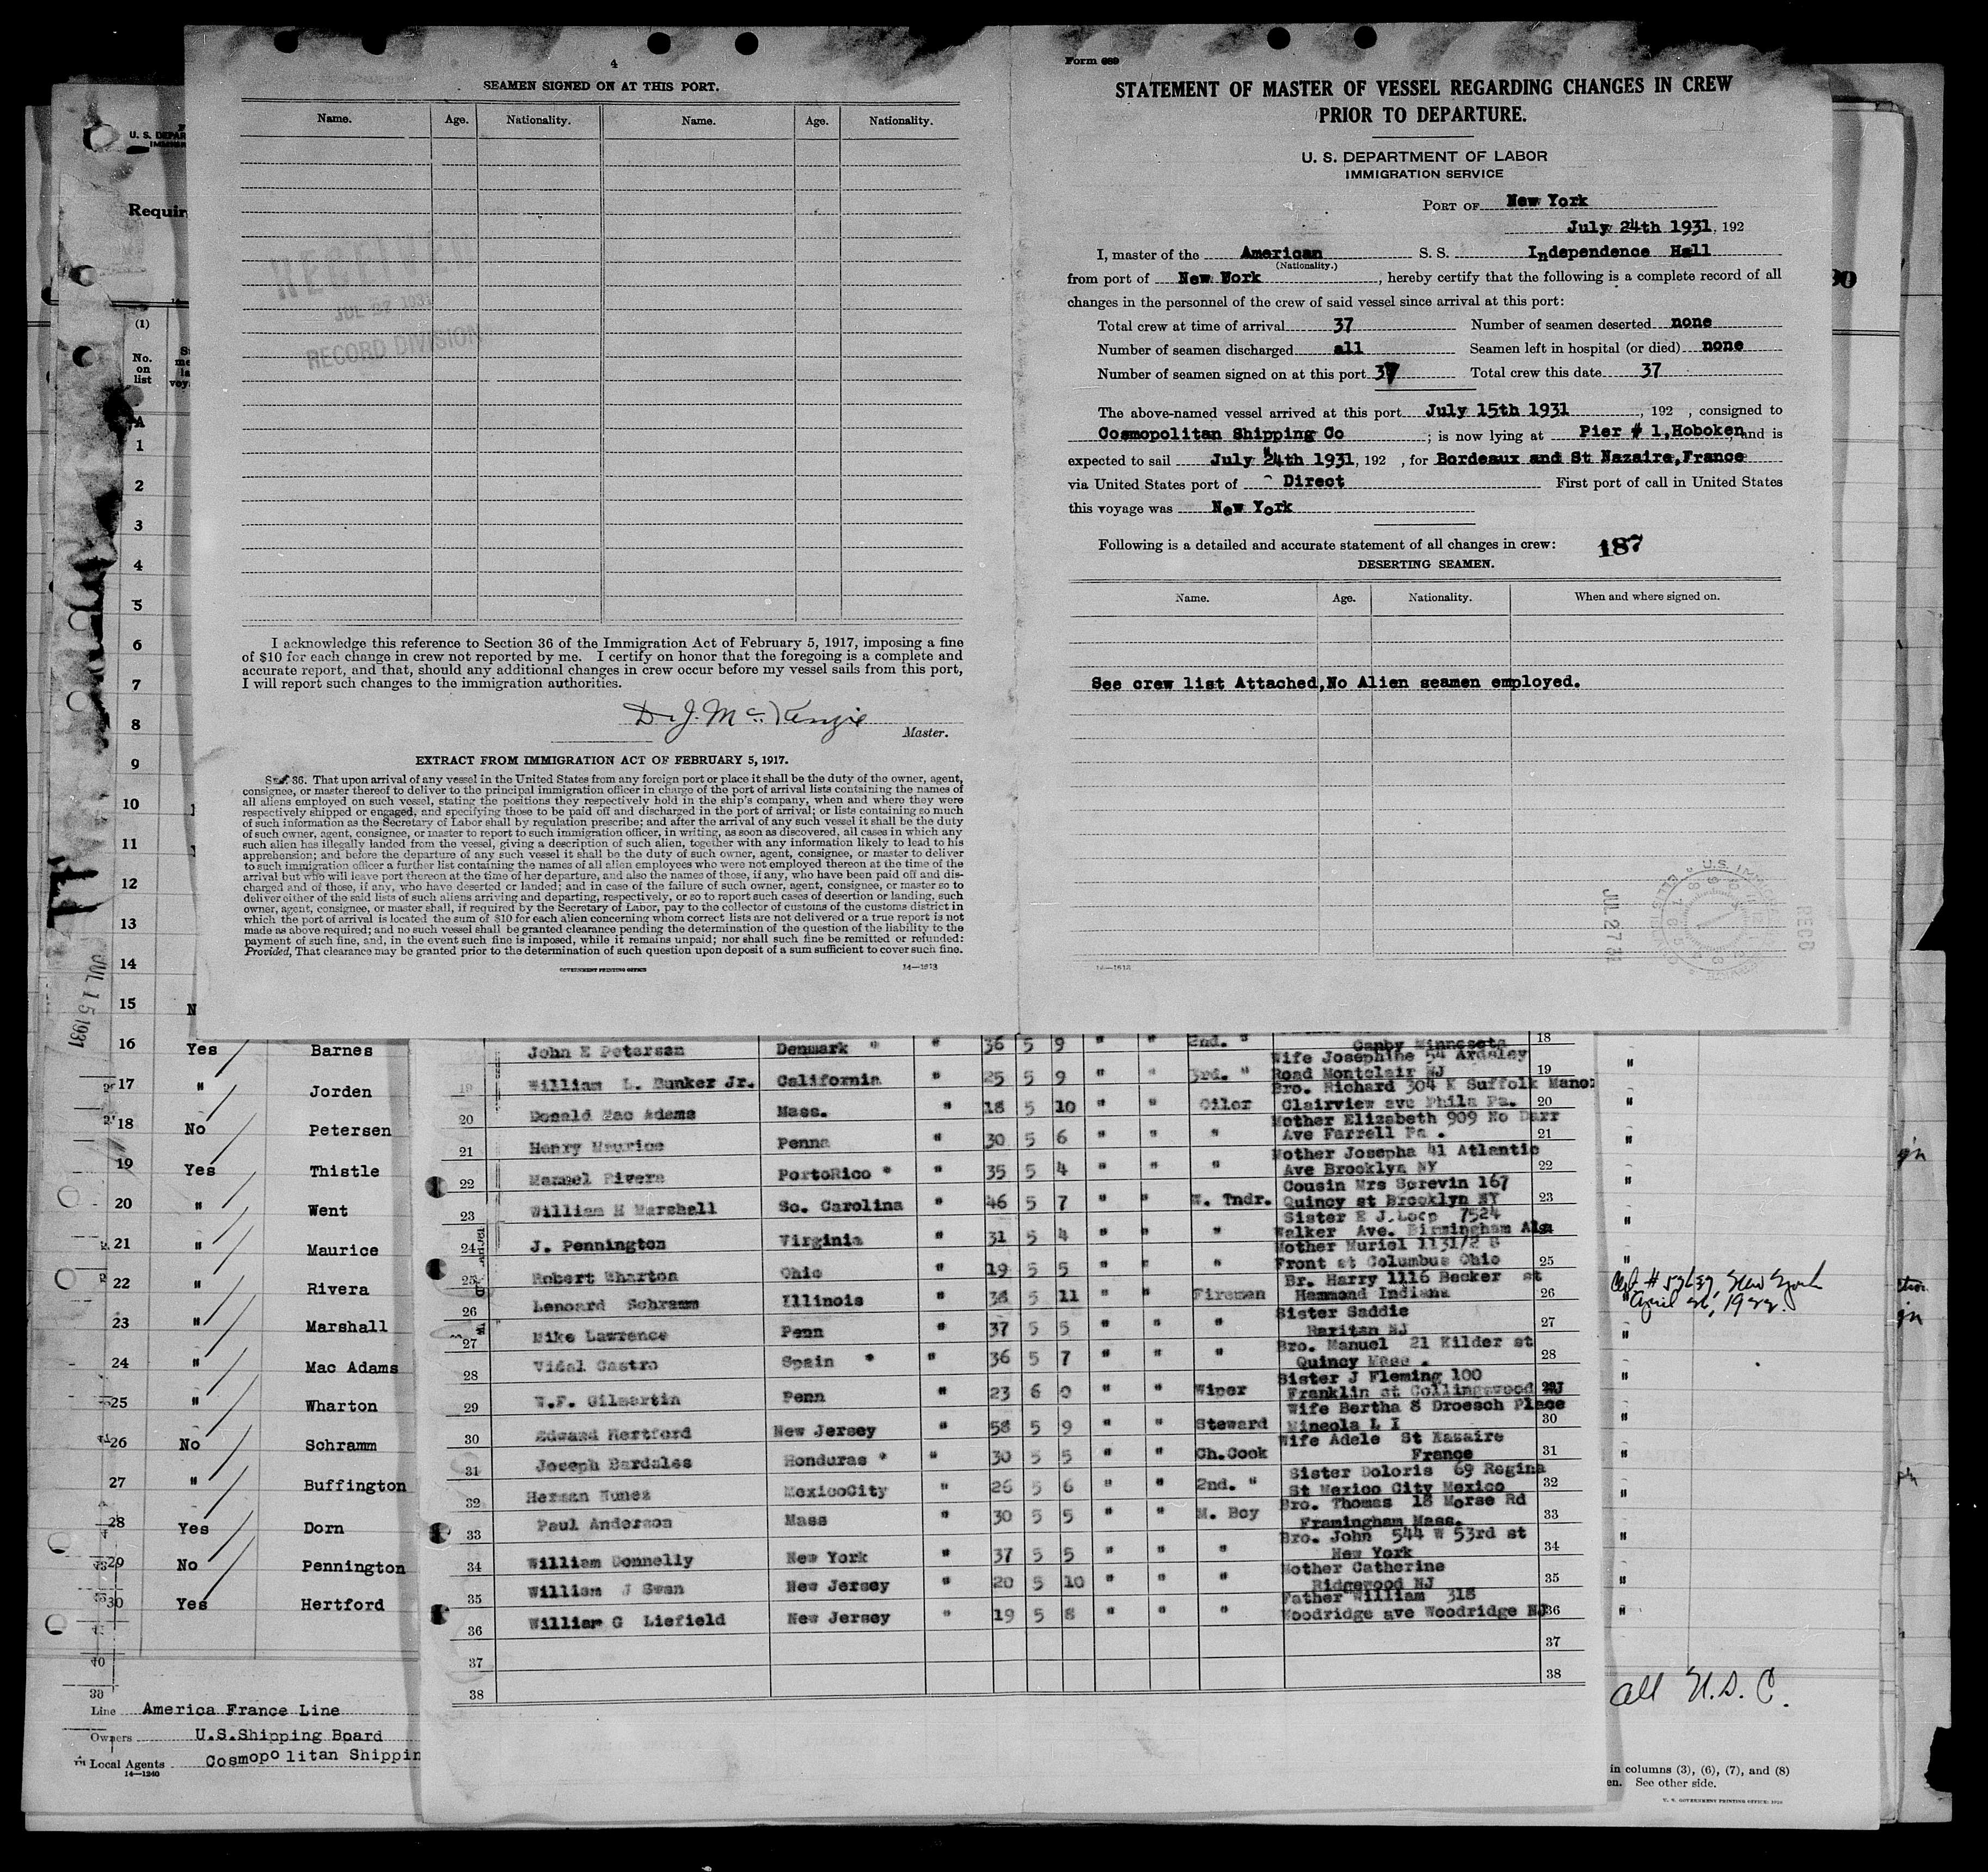 4
SEAMEN SIGNED ON AT THIS PORT.
Name. Age. Nationality. Name. Age. Nationality.
RECEIVED
JUL 27 1931
RECORD DIVISION
I acknowledge this reference to Section 36 of the Immigration Act of February 5, 1917, imposing a fine
of $10 for each change in crew not reported by me. I certify on honor that the foregoing is a complete and
accurate report, and that, should any additional changes in crew occur before my vessel sails from this port,
I will report such changes to the immigration authorities.
D. J. McKenzie
Master.
EXTRACT FROM IMMIGRATION ACT OF FEBRUARY 5, 1917.
Sec. 36. That upon arrival of any vessel in the United States from any foreign port or place it shall be the duty of the owner, agent,
consignee, or master thereof to deliver to the principal immigration officer in charge of the port of arrival lists containing the names of
all aliens employed on such vessel, stating the positions they respectively hold in the ship's company, when and where they were
respectively shipped or engaged, and specifying those to be paid off and discharged in the port of arrival; or lists containing so much
of such information as the Secretary of Labor shall by regulation prescribe; and after the arrival of any such vessel it shall be the duty
of such owner, agent, consignee, or master to report to such immigration officer, in writing, as soon as discovered, all cases in which any
such alien has illegally landed from the vessel, giving a description of such alien, together with any information likely to lead to his
apprehension; and before the departure of any such vessel it shall be the duty of such owner, agent, consignee, or master to deliver
to such immigration officer a further list containing the names of all alien employees who were not employed thereon at the time of the
arrival but who will leave port thereon at the time of her departure, and also the names of those, if any, who have been paid off and dis-
charged and of those, if any, who have deserted or landed; and in case of the failure of such owner, agent, consignee, or master so to
deliver either of the said lists of such aliens arriving and departing, respectively, or so to report such cases of desertion or landing, such
owner, agent, consignee, or master shall, if required by the Secretary of Labor, pay to the collector of customs of the customs district in
which the port of arrival is located the sum of $10 for each alien concerning whom correct lists are not delivered or a true report is not
made as above required; and no such vessel shall be granted clearance pending the determination of the question of the liability to the
payment of such fine, and, in the event such fine is imposed, while it remains unpaid; nor shall such fine be remitted or refunded:
Provided, That clearance may be granted prior to the determination of such question upon deposit of a sum sufficient to cover such fine.
GOVERNMENT PRINTING OFFICE 14—1613
Form 689
STATEMENT OF MASTER OF VESSEL REGARDING CHANGES IN CREW
PRIOR TO DEPARTURE.
U. S. DEPARTMENT OF LABOR
IMMIGRATION SERVICE
PORT OF New York
July 24th 1931, 192
I, master of the American S. S. Independence Hall
(Nationality.)
from port of New York, hereby certify that the following is a complete record of all
changes in the personnel of the crew of said vessel since arrival at this port:
Total crew at time of arrival 37 Number of seamen deserted none
Number of seamen discharged all Seamen left in hospital (or died) none
Number of seamen signed on at this port 37 Total crew this date 37
The above-named vessel arrived at this port July 15th 1931, 192 , consigned to
Cosmopolitan Shipping Co ; is now lying at Pier # 1, Hoboken, and is
expected to sail July 24th 1931, 192 , for Bordeaux and St Nazaire, France
via United States port of Direct First port of call in United States
this voyage was New York
Following is a detailed and accurate statement of all changes in crew: 187
DESERTING SEAMEN.
Name. Age. Nationality. When and where signed on.
See crew list Attached, No Alien seamen employed.
JUL 27 31
RECD
14—1613
Requir
(1)
No.
on
list
1
2
3
4
5
6
7
8
9
10
11
12
13
14
15
JUL 15 1931
16 Yes Barnes
17 " Jorden
18 No Petersen
19 Yes Thistle
20 " Went
21 " Maurice
22 " Rivera
23 " Marshall
24 " Mac Adams
25 " Wharton
26 No Schramm
27 " Buffington
28 Yes Dorn
29 No Pennington
30 Yes Hertford
Line America France Line
Owners U.S.Shipping Board
Local Agents Cosmopolitan Shippin
14—1240
John E Petersen Denmark " " 36 5 9 " " 2nd. " Canby Minnesota 18
19 William L. Bunker Jr. California " 25 5 9 " " 3rd. " Wife Josephine 54 Ardsley Road Montclair NJ 19
20 Donald Mac Adams Mass. " 18 5 10 " " Oiler Bro. Richard 304 K Suffolk Manor Clairview ave Phila Pa. 20
21 Henry Maurice Penna " 30 5 6 " " " Mother Elizabeth 909 No Darr Ave Farrell Pa . 21
22 Manuel Rivera PortoRico * " 35 5 4 " " " Mother Josepha 41 Atlantic Ave Brooklyn NY 22
23 William H Marshall So. Carolina " 46 5 7 " " W. Tndr. Cousin Mrs Serevin 167 Quincy st Brooklyn NY 23
24 J. Pennington Virginia " 31 5 4 " " " Sister E J. Loep 7524 Walker Ave. Birmingham Ala
25 Robert Wharton Ohio " 19 5 5 " " " Mother Muriel 1131/2 S Front st Columbus Ohio 25
26 Lenoard Schramm Illinois " 38 5 11 " " Fireman Br. Harry 1116 Becker st Hammond Indiana 26
27 Mike Lawrence Penn " 37 5 5 " " " Sister Saddie Raritan NJ 27
28 Vidal Castro Spain * " 36 5 7 " " " Bro. Manuel 21 Kilder st Quincy Mass . 28
29 W.F. Gilmartin Penn " 23 6 0 " " Wiper Sister J Fleming 100 Franklin st Collingswood NJ 29
30 Edward Hertford New Jersey " 58 5 9 " " Steward Wife Bertha 8 Droesch Place Mineola L I 30
31 Joseph Bardales Honduras * " 30 5 5 " " Ch.Cook Wife Adele St Nazaire France 31
32 Herman Nunez MexicoCity " 26 5 6 " " 2nd. " Sister Doloris 69 Regina St Mexico City Mexico 32
33 Paul Anderson Mass " 30 5 5 " " M. Boy Bro. Thomas 18 Morse Rd Framingham Mass. 33
34 William Donnelly New York " 37 5 5 " " " Bro. John 544 W 53rd st New York 34
35 William J Swan New Jersey " 20 5 10 " " " Mother Catherine Ridgewood NJ 35
36 William G Liefield New Jersey " 19 5 8 " " " Father William 318 Woodridge ave Woodridge NJ 36
37 37
38 38
New York
April 26, 1922.
all U.S.C.
in columns (3), (6), (7), and (8)
en. See other side.
U. S. GOVERNMENT PRINTING OFFICE